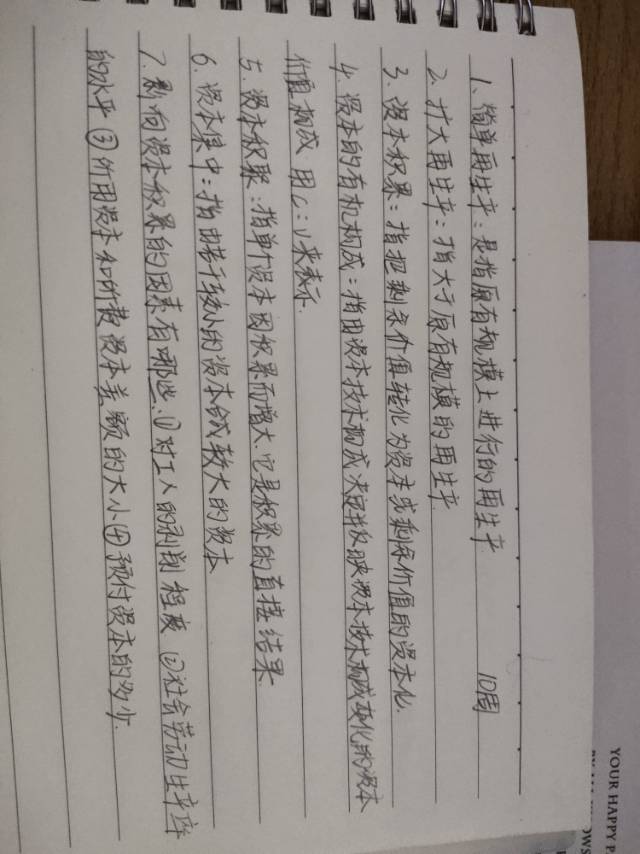 10周
1、简单再生产：是指原有规模上进行的再生产
2、扩大再生产：指大于原有规模的再生产
3、资本积累：指把剩余价值转化为资本或剩余价值的资本化.
4、资本的有机构成：指由资本技术构成决定并反映资本技术构成变化的资本
价值构成 用C:V来表示.
5、资本积聚：指单个资本因积累而增大.它是积累的直接结果.
6、资本集中：指由若干较小的资本合成较大的资本
7、影响资本积累的因素有哪些.①对工人的剥削程度 ②社会劳动生产率
的水平 ③所用资本和所费资本差额的大小④预付资本的多少.
YOUR HAPPY P